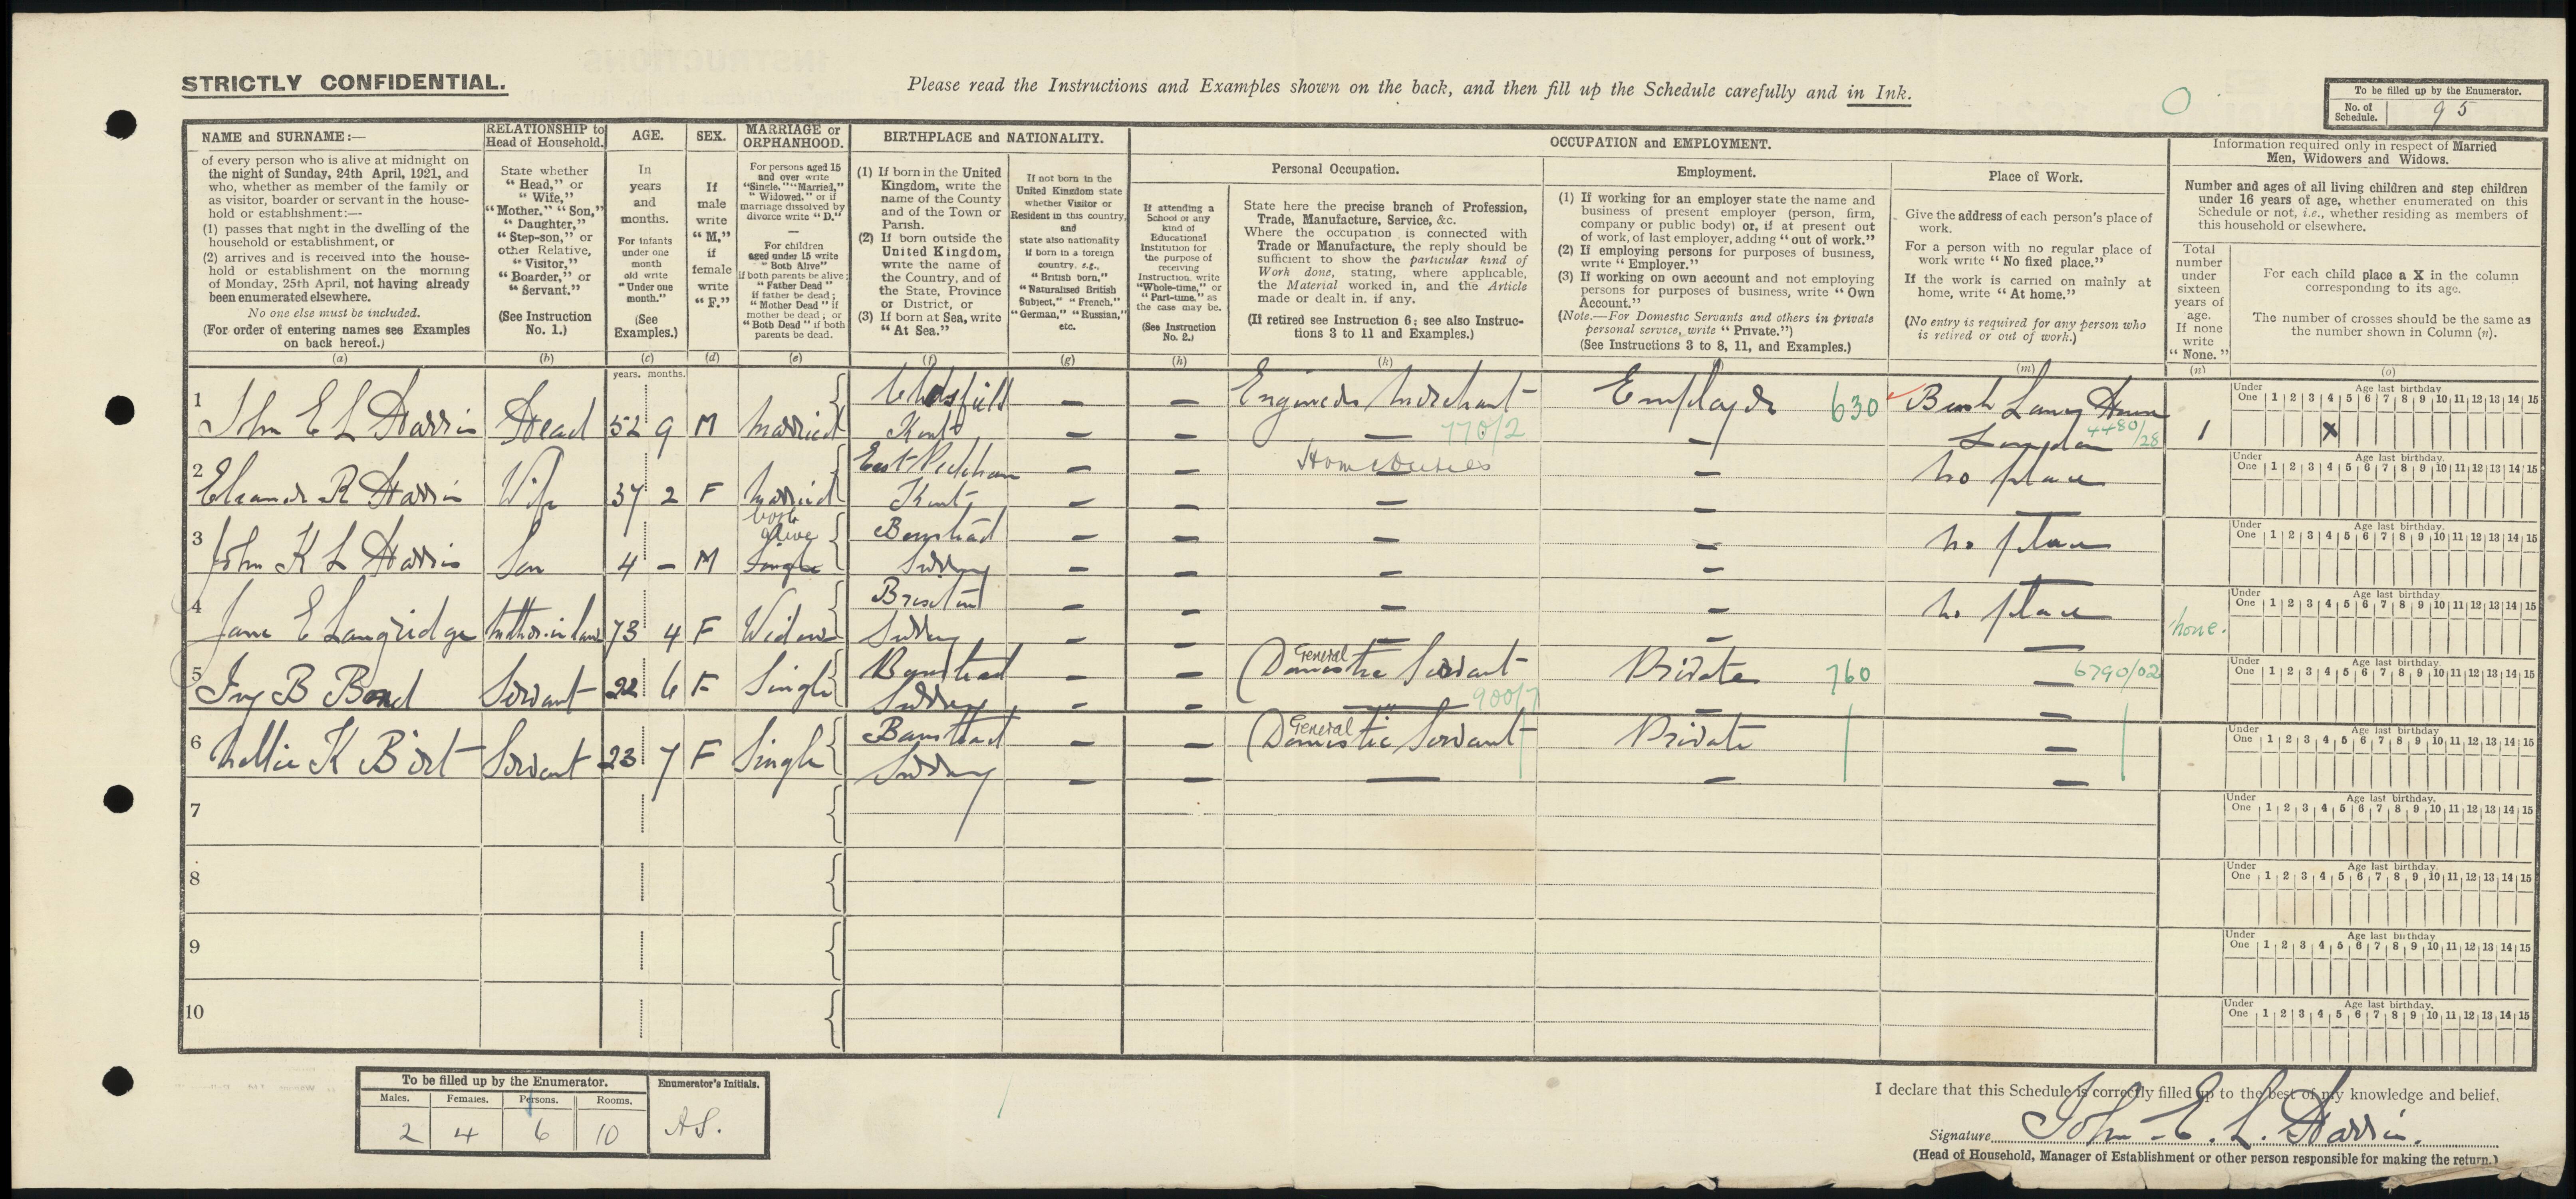 STRICTLY CONFIDENTIAL.
Please read the Instructions and Examples shown on the back, and then fill up the Schedule carefully and in Ink.
To be filled up by the Enumerator.
No. of Schedule. 95
NAME and SURNAME:—
of every person who is alive at midnight on
the night of Sunday, 24th April, 1921, and
who, whether as member of the family or
as visitor, boarder or servant in the house-
hold or establishment:—
(1) passes that night in the dwelling of the
household or establishment, or
(2) arrives and is received into the house-
hold or establishment on the morning
of Monday, 25th April, not having already
been enumerated elsewhere.
No one else must be included.
(For order of entering names see Examples
on back hereof.)
(a)
RELATIONSHIP to
Head of Household.
State whether
"Head," or
"Wife,"
"Mother," "Son,"
"Daughter,"
"Step-son," or
other Relative,
"Visitor,"
"Boarder," or
"Servant."
(See Instruction
No. 1.)
(b)
AGE.
In
years
and
months.
For infants
under one
month
old write
"Under one
month."
(See
Examples.)
(c)
years. months.
SEX.
If
male
write
"M,"
if
female
write
"F."
(d)
MARRIAGE or
ORPHANHOOD.
For persons aged 15
and over write
"Single," "Married,"
"Widowed," or if
marriage dissolved by
divorce write "D."
—
For children
aged under 15 write
"Both Alive"
if both parents be alive;
"Father Dead"
if father be dead;
"Mother Dead" if
mother be dead; or
"Both Dead" if both
parents be dead.
(e)
BIRTHPLACE and NATIONALITY.
(1) If born in the United
Kingdom, write the
name of the County
and of the Town or
Parish.
(2) If born outside the
United Kingdom,
write the name of
the Country, and of
the State, Province
or District, or
(3) If born at Sea, write
"At Sea."
(f)
If not born in the
United Kingdom state
whether Visitor or
Resident in this country,
and
state also nationality
if born in a foreign
country, e.g.,
"British born,"
"Naturalised British
Subject," "French,"
"German," "Russian,"
etc.
(g)
OCCUPATION and EMPLOYMENT.
If attending a
School or any
kind of
Educational
Institution for
the purpose of
receiving
Instruction, write
"Whole-time," or
"Part-time," as
the case may be.
(See Instruction
No. 2.)
(h)
Personal Occupation.
State here the precise branch of Profession,
Trade, Manufacture, Service, &c.
Where the occupation is connected with
Trade or Manufacture, the reply should be
sufficient to show the particular kind of
Work done, stating, where applicable,
the Material worked in, and the Article
made or dealt in, if any.
(If retired see Instruction 6; see also Instruc-
tions 3 to 11 and Examples.)
(k)
Employment.
(1) If working for an employer state the name and
business of present employer (person, firm,
company or public body) or, if at present out
of work, of last employer, adding "out of work."
(2) If employing persons for purposes of business,
write "Employer."
(3) If working on own account and not employing
persons for purposes of business, write "Own
Account."
(Note.—For Domestic Servants and others in private
personal service, write "Private.")
(See Instructions 3 to 8, 11, and Examples.)
Place of Work.
Give the address of each person's place of
work.
For a person with no regular place of
work write "No fixed place."
If the work is carried on mainly at
home, write "At home."
(No entry is required for any person who
is retired or out of work.)
(m)
Information required only in respect of Married
Men, Widowers and Widows.
Number and ages of all living children and step children
under 16 years of age, whether enumerated on this
Schedule or not, i.e., whether residing as members of
this household or elsewhere.
Total
number
under
sixteen
years of
age.
If none
write
"None."
(n)
For each child place a X in the column
corresponding to its age.
The number of crosses should be the same as
the number shown in Column (n).
(o)
Under One Age last birthday. 1 2 3 4 5 6 7 8 9 10 11 12 13 14 15
1 John E L Harris Head 52 9 M Married Chelsfield Kent — — Engineers Merchant 770/2 Employer 630 Bush Lane House London 4480/28 1 X
Under One Age last birthday. 1 2 3 4 5 6 7 8 9 10 11 12 13 14 15
2 Eleanor R Harris Wife 37 2 F Married East Peckham Kent — — Home Duties — no place
Under One Age last birthday. 1 2 3 4 5 6 7 8 9 10 11 12 13 14 15
3 John K L Harris Son 4 — M both alive Single Banstead Surrey — — — — no place
Under One Age last birthday. 1 2 3 4 5 6 7 8 9 10 11 12 13 14 15
4 Jane E Langridge Mother-in-law 73 4 F Widow Brixton Surrey — — — — no place none.
Under One Age last birthday. 1 2 3 4 5 6 7 8 9 10 11 12 13 14 15
5 Ivy B Bond Servant 22 6 F Single Banstead Surrey — — General Domestic Servant 900/7 Private 760 — 6790/02
Under One Age last birthday. 1 2 3 4 5 6 7 8 9 10 11 12 13 14 15
6 Nellie K Birt Servant 23 7 F Single Banstead Surrey — — General Domestic Servant Private —
Under One Age last birthday. 1 2 3 4 5 6 7 8 9 10 11 12 13 14 15
7
Under One Age last birthday. 1 2 3 4 5 6 7 8 9 10 11 12 13 14 15
8
Under One Age last birthday. 1 2 3 4 5 6 7 8 9 10 11 12 13 14 15
9
Under One Age last birthday. 1 2 3 4 5 6 7 8 9 10 11 12 13 14 15
10
Under One Age last birthday. 1 2 3 4 5 6 7 8 9 10 11 12 13 14 15
To be filled up by the Enumerator.
Males. Females. Persons. Rooms.
2 4 6 10
Enumerator's Initials.
A.S.
I declare that this Schedule is correctly filled up to the best of my knowledge and belief.
Signature John E. L. Harris.
(Head of Household, Manager of Establishment or other person responsible for making the return.)